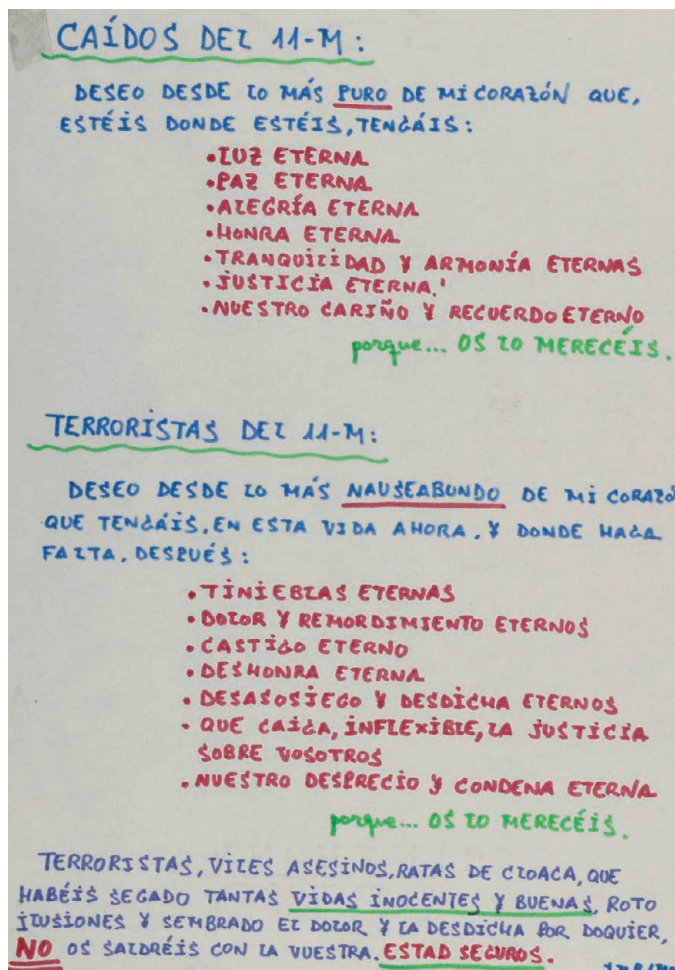 CAÍDOS DEL 11-M:
DESEO DESDE LO MÁS PURO DE MI CORAZÓN QUE,
ESTÉIS DONDE ESTÉIS, TENGÁIS:
• LUZ ETERNA
• PAZ ETERNA
• ALEGRÍA ETERNA
• HONRA ETERNA
• TRANQUILIDAD Y ARMONÍA ETERNAS
• JUSTICIA ETERNA.
• NUESTRO CARIÑO Y RECUERDO ETERNO
porque... OS LO MERECÉIS.
TERRORISTAS DEL 11-M:
DESEO DESDE LO MÁS NAUSEABUNDO DE MI CORAZÓ
QUE TENGÁIS, EN ESTA VIDA AHORA, Y DONDE HAGA
FALTA, DESPUÉS:
• TINIEBLAS ETERNAS
• DOLOR Y REMORDIMIENTO ETERNOS
• CASTIGO ETERNO
• DESHONRA ETERNA
• DESASOSIEGO Y DESDICHA ETERNOS
• QUE CAIGA, INFLEXIBLE, LA JUSTICIA
SOBRE VOSOTROS
• NUESTRO DESPRECIO Y CONDENA ETERNA
porque... OS LO MERECÉIS.
TERRORISTAS, VILES ASESINOS, RATAS DE CLOACA, QUE
HABÉIS SEGADO TANTAS VIDAS INOCENTES Y BUENAS, ROTO
ILUSIONES Y SEMBRADO EL DOLOR Y LA DESDICHA POR DOQUIER,
NO OS SALDRÉIS CON LA VUESTRA. ESTAD SEGUROS.